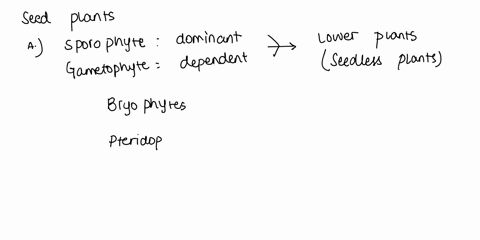 Seed plants
A.) Sporophyte : dominant → Lower plants
Gametophyte = dependent (Seedless plants)
Bryophytes
Pteridop